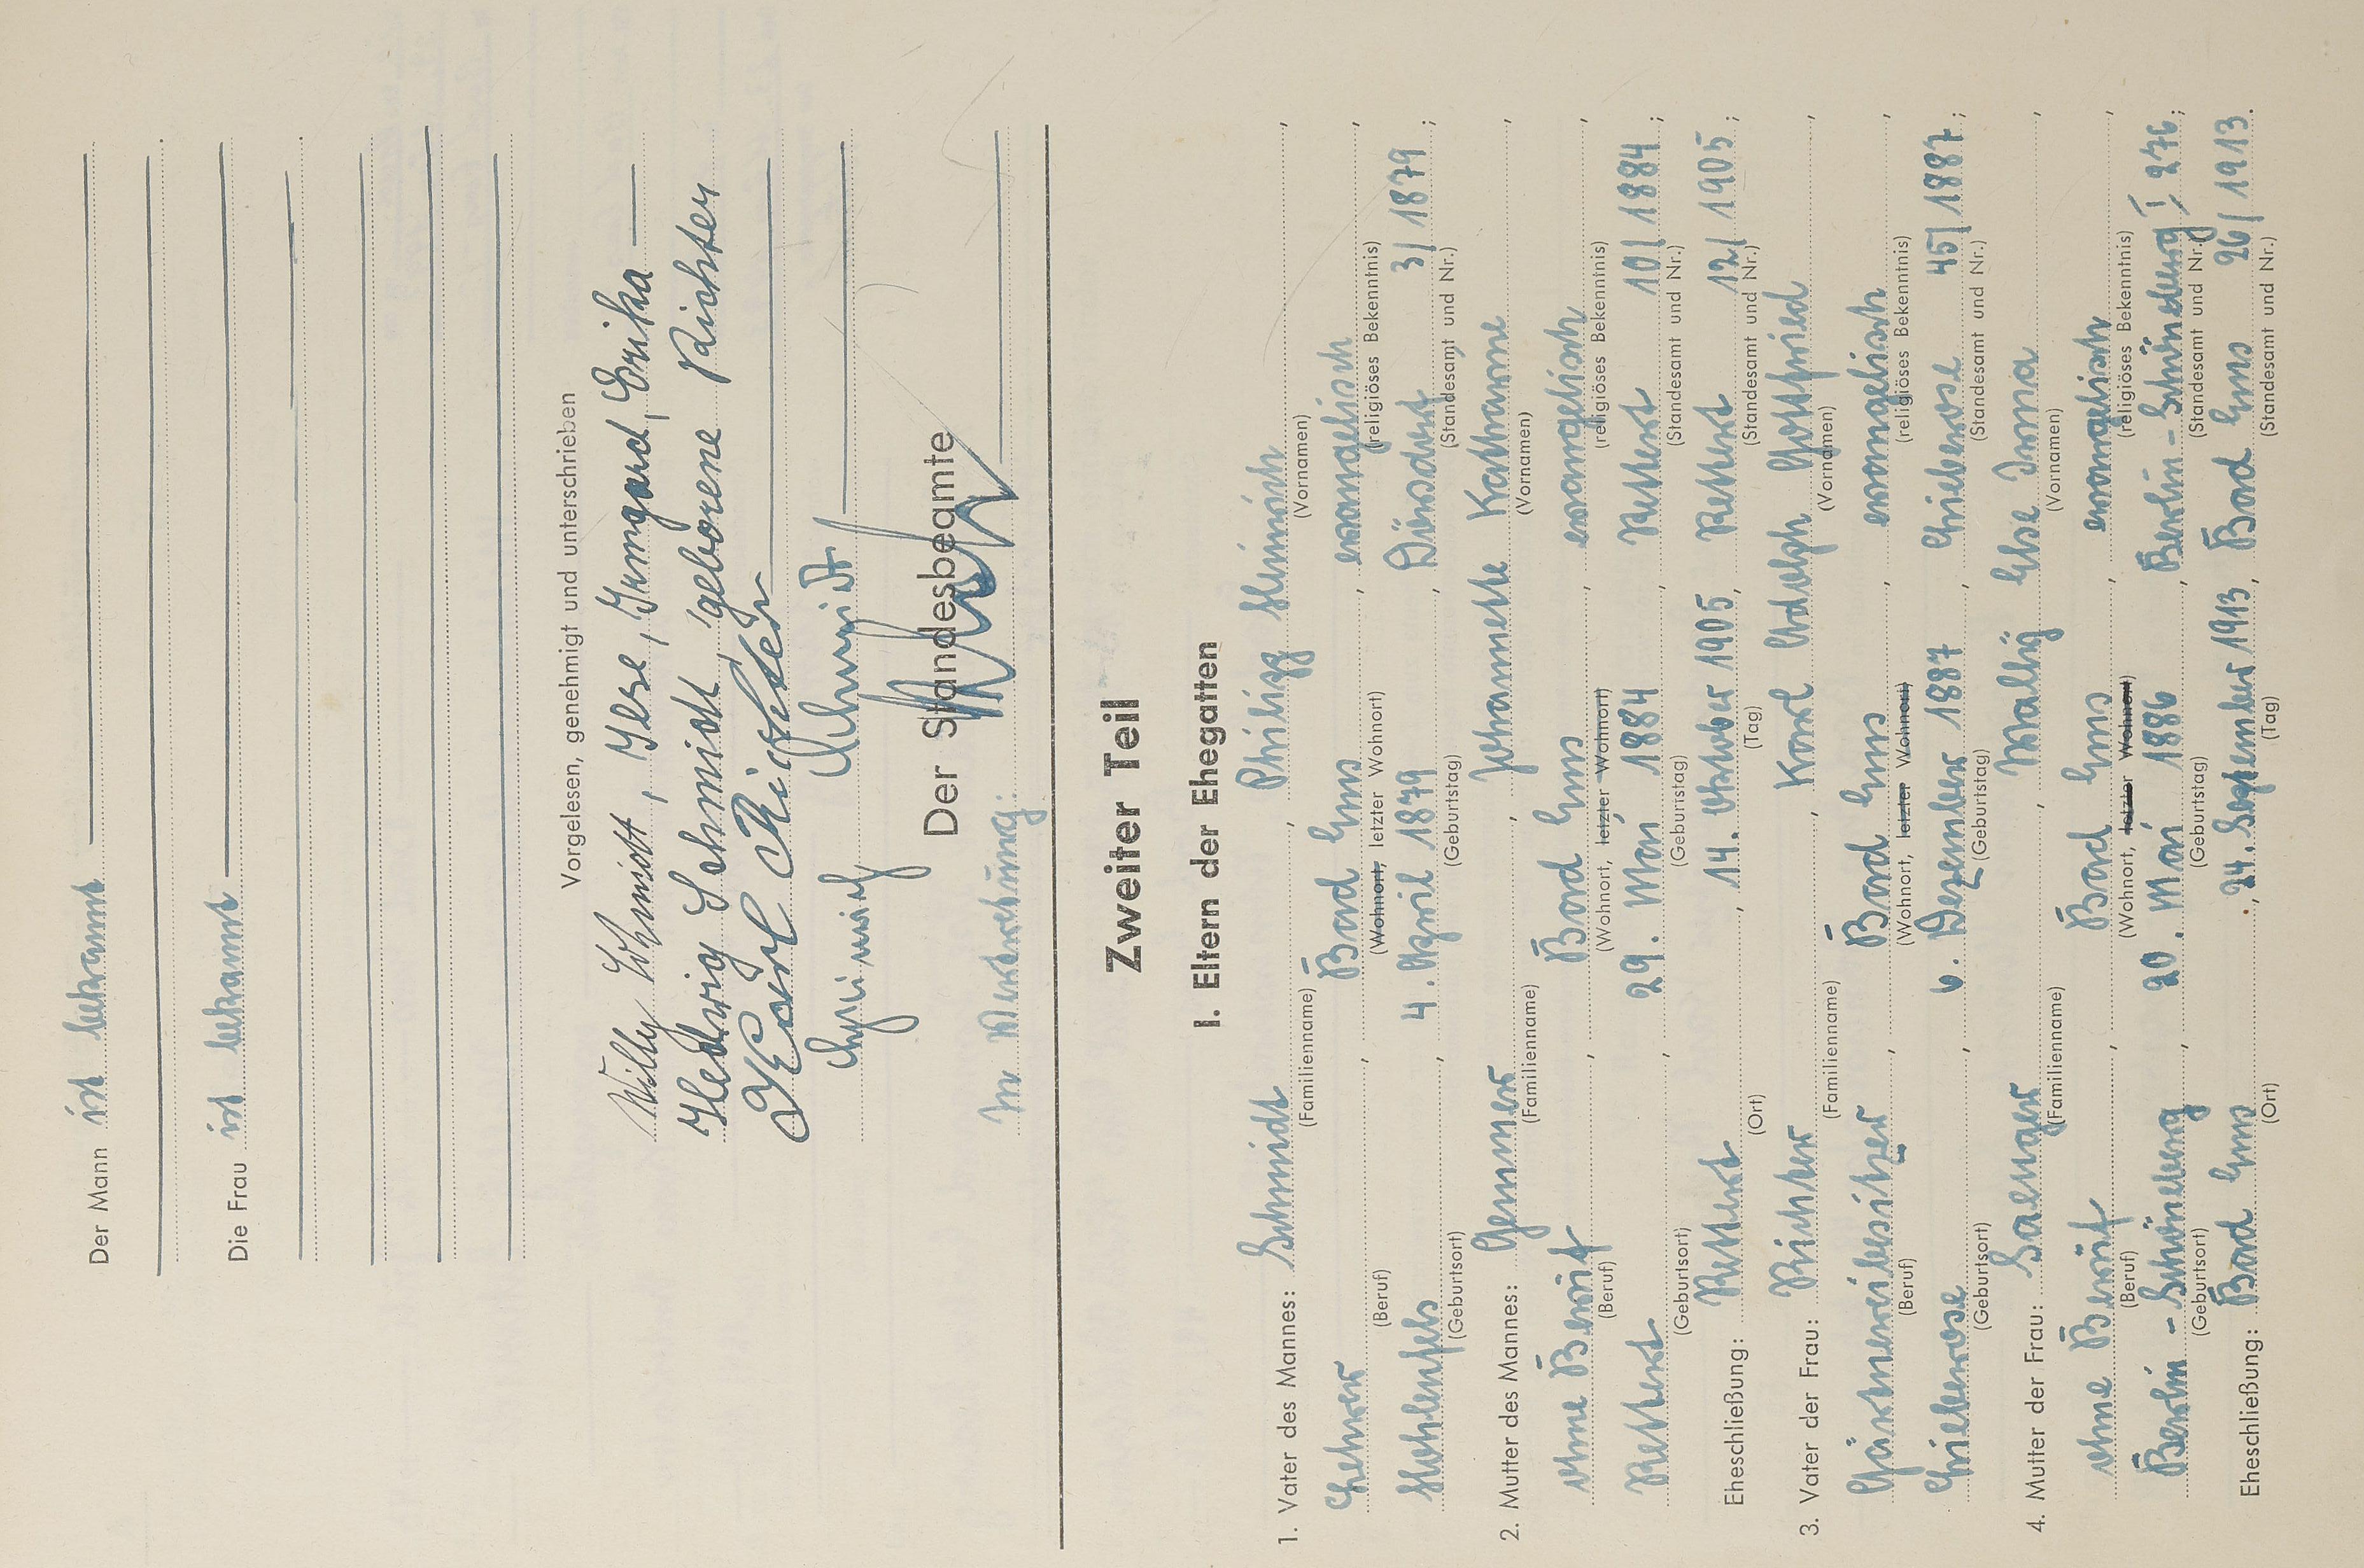 Der Mann ist bekannt
Die Frau ist bekannt
Vorgelesen, genehmigt und unterschrieben
Willy Schmidt, Ilse, Irmgard, Erika
Hedwig Schmidt, geborene Richter
Karl Richter
Schmidt
Der Standesbeamte
In Vertretung:
Zweiter Teil
I. Eltern der Ehegatten
1. Vater des Mannes: Schmidt, Philipp Heinrich,
(Familienname) (Vornamen)
Lehrer, Bad Ems, evangelisch,
(Beruf) (Wohnort, letzter Wohnort) (religiöses Bekenntnis)
Hohlenfels, 4. April 1879, Dörsdorf 3/1879;
(Geburtsort) (Geburtstag) (Standesamt und Nr.)
2. Mutter des Mannes: Gemmer, Johannette Katharine,
(Familienname) (Vornamen)
ohne Beruf, Bad Ems, evangelisch,
(Beruf) (Wohnort, letzter Wohnort) (religiöses Bekenntnis)
Rettert, 29. Mai 1884, Rettert 10/1884;
(Geburtsort) (Geburtstag) (Standesamt und Nr.)
Eheschließung: Rettert, 14. Oktober 1905, Rettert 12/1905;
(Ort) (Tag) (Standesamt und Nr.)
3. Vater der Frau: Richter, Karl Adolph Gottfried,
(Familienname) (Vornamen)
Gärtnereibesitzer, Bad Ems, evangelisch,
(Beruf) (Wohnort, letzter Wohnort) (religiöses Bekenntnis)
Lieberose, 6. Dezember 1887, Lieberose 45/1887;
(Geburtsort) (Geburtstag) (Standesamt und Nr.)
4. Mutter der Frau: Saenger, Mally Else Irma,
(Familienname) (Vornamen)
ohne Beruf, Bad Ems, evangelisch,
(Beruf) (Wohnort, letzter Wohnort) (religiöses Bekenntnis)
Berlin-Schöneberg, 20. Mai 1886, Berlin-Schöneberg I 276;
(Geburtsort) (Geburtstag) (Standesamt und Nr.)
Eheschließung: Bad Ems, 24. September 1913, Bad Ems 26/1913.
(Ort) (Tag) (Standesamt und Nr.)